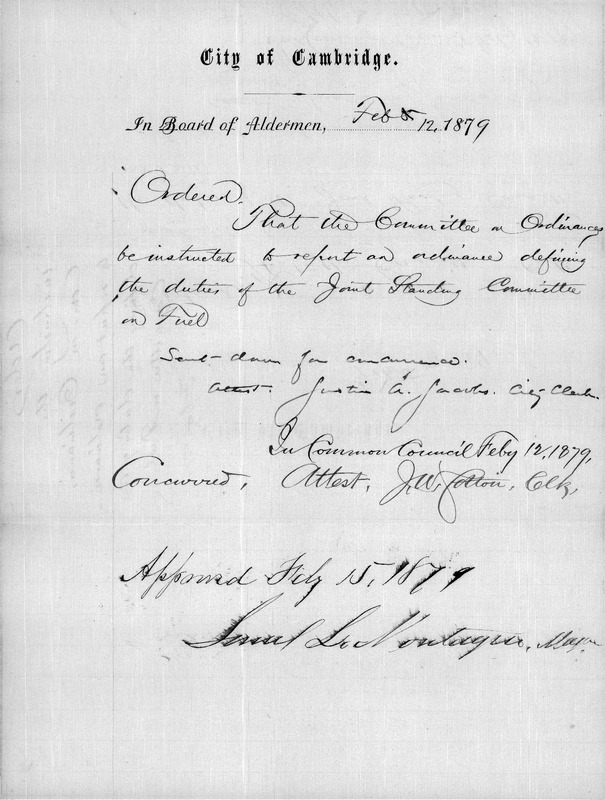 City of Cambridge.
In Board of Aldermen, Feb 12, 1879
Ordered.
That the Committee on Ordinances
be instructed to report an ordinance defining
the duties of the Joint Standing Committee
on Fuel
Sent down for concurrence.
Attest. Justin A. Jacobs. City Clerk.
In Common Council Feby 12, 1879,
Concurred, Attest, J. W. Cotton, Clk,
Approved Feby 15, 1879
Saml L. Montague, Mayor